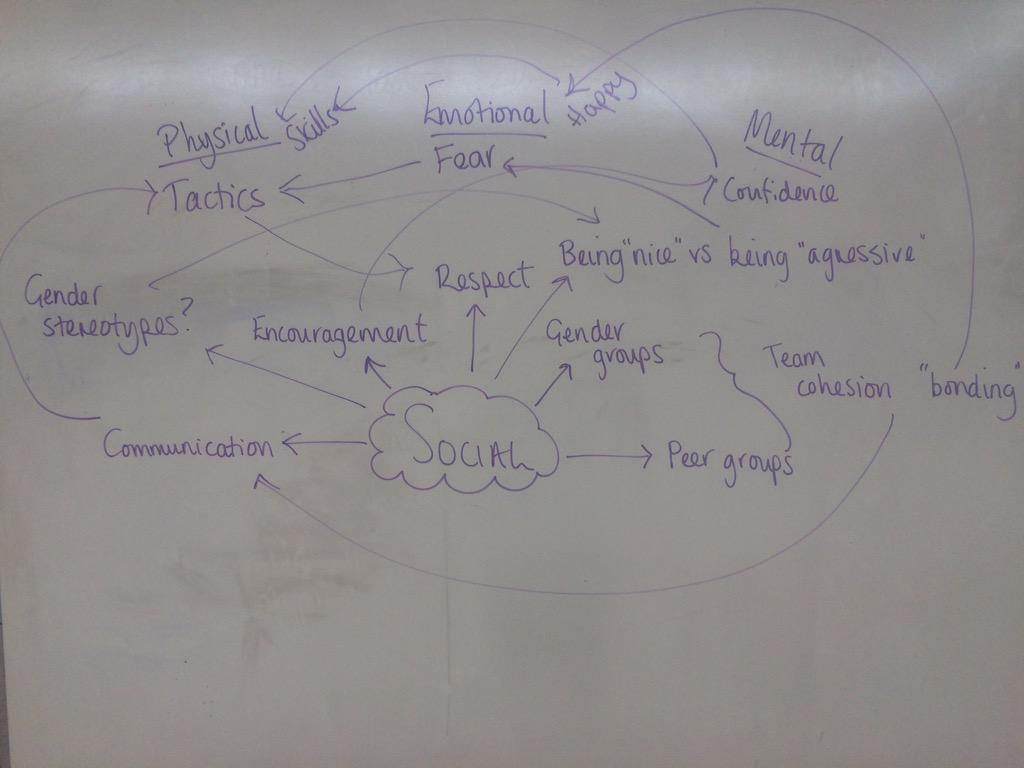 Physical
Skills
Emotional
Happy
Mental
Tactics
Fear
Confidence
Being "nice" vs being "agressive"
Respect
Gender
stereotypes?
Encouragement
Gender
groups
Team
cohesion
"bonding"
Communication
SOCIAL
Peer groups